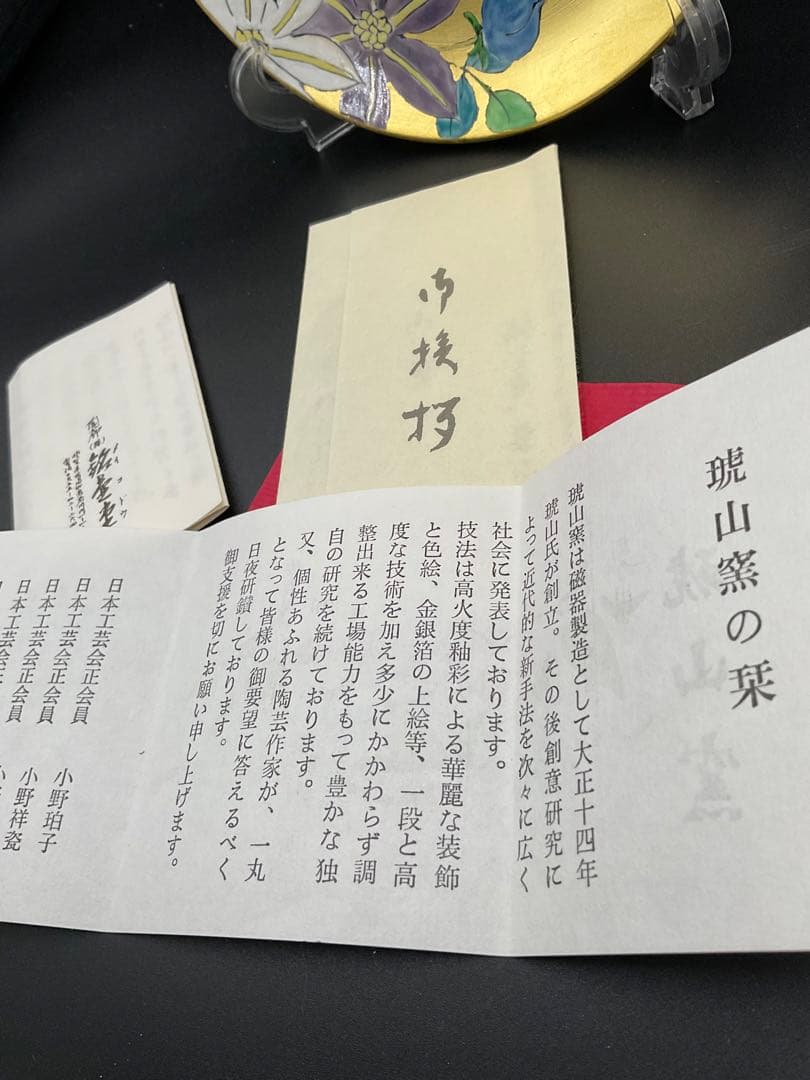 御挨拶
琥山窯の栞
琥山窯は磁器製造として大正十四年
琥山氏が創立。その後創意研究に
よって近代的な新手法を次々に広く
社会に発表しております。
技法は高火度釉彩による華麗な装飾
と色絵、金銀箔の上絵等、一段と高
度な技術を加え多少にかかわらず調
整出来る工場能力をもって豊かな独
自の研究を続けております。
又、個性あふれる陶芸作家が、一丸
となって皆様の御要望に答えるべく
日夜研鑽しております。
御支援を切にお願い申し上げます。
日本工芸会正会員 小野珀子
日本工芸会正会員 小野祥瓷
日本工芸会正会員
日本工芸会正会員